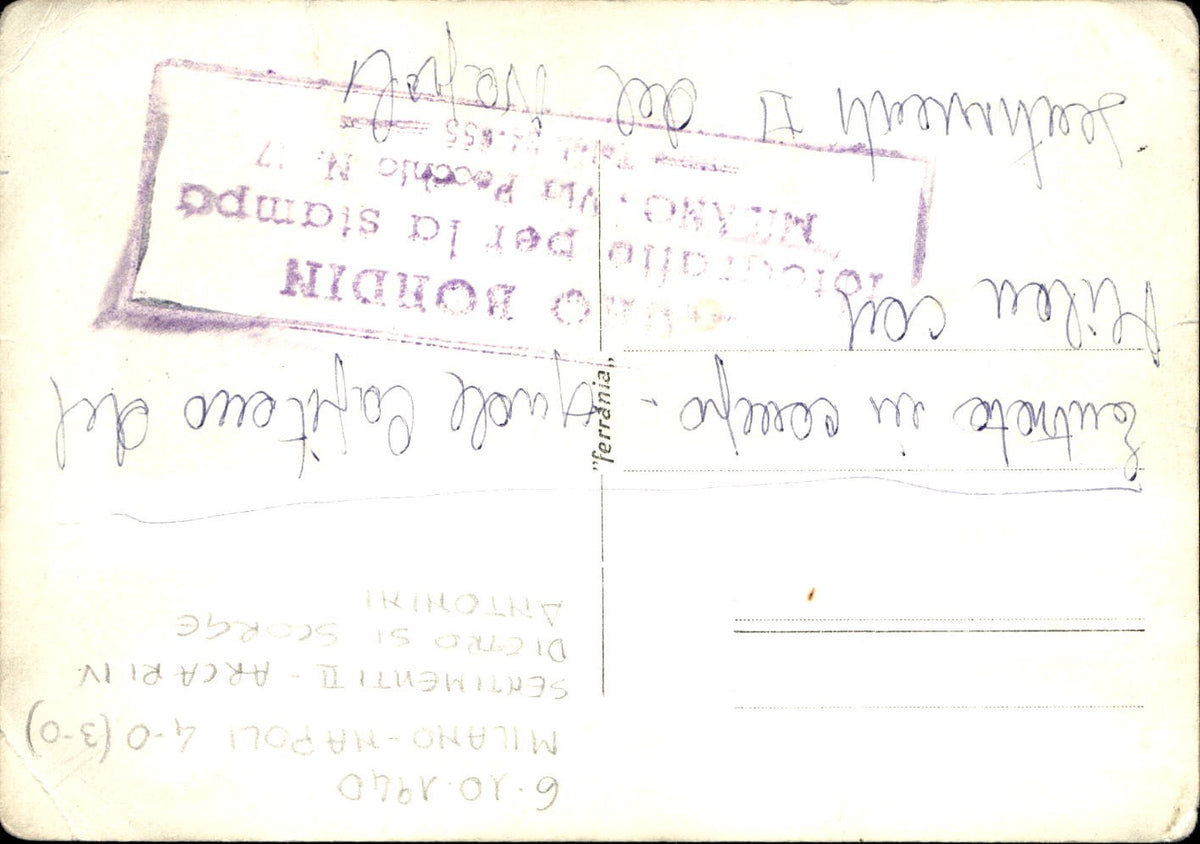 6.10.1940
MILANO-NAPOLI 4-0 (3-0)
SENTIMENTI II - ARCARI IV
DIETRO SI SCORGE
ANTONINI
Entrata in campo - quale Capitano del
Milan con
Sentimenti II del Napoli
"ferrania"
BONDIN
fotografie per la stampa
MILANO - Via Pecchio N. 17
Telef.